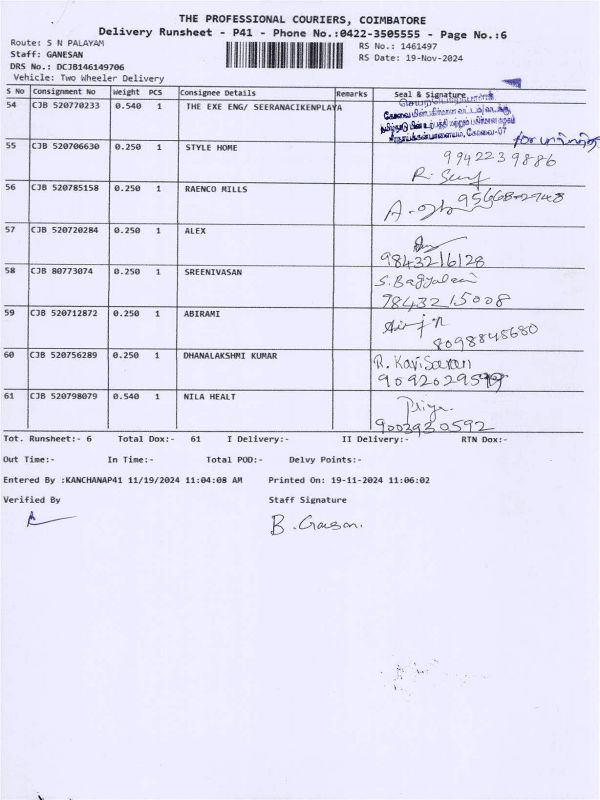 THE PROFESSIONAL COURIERS, COIMBATORE
Delivery Runsheet - P41 - Phone No.:0422-3505555 - Page No.:6
Route: S N PALAYAM
RS No.: 1461497
Staff: GANESAN
RS Date: 19-Nov-2024
DRS No.: DCJB146149706
Vehicle: Two Wheeler Delivery
S No Consignment No Weight PCS Consignee Details Remarks Seal & Signature
54 CJB 520770233 0.540 1 THE EXE ENG/ SEERANACIKENPLAYA
கோவை மின்பகிர்மான வட்டம்/வடக்கு,
தமிழ்நாடு மின் உற்பத்தி மற்றும் பகிர்மான கழகம்
கோவை-07
for
55 CJB 520706630 0.250 1 STYLE HOME
9942239886
R.
56 CJB 520785158 0.250 1 RAENCO MILLS
A.
57 CJB 520720284 0.250 1 ALEX
9843216128
58 CJB 80773074 0.250 1 SREENIVASAN
S. Bagyalaxmi
9843215008
59 CJB 520712872 0.250 1 ABIRAMI
8098845680
60 CJB 520756289 0.250 1 DHANALAKSHMI KUMAR
R. KaviSaran
61 CJB 520798079 0.540 1 NILA HEALT
Priya
9003930592
Tot. Runsheet:- 6 Total Dox:- 61 I Delivery:- II Delivery:- RTN Dox:-
Out Time:- In Time:- Total POD:- Delvy Points:-
Entered By :KANCHANAP41 11/19/2024 11:04:08 AM Printed On: 19-11-2024 11:06:02
Verified By Staff Signature